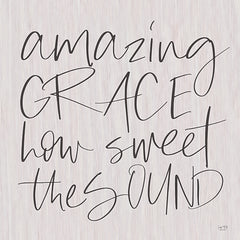 amazing
GRACE
how sweet
the SOUND